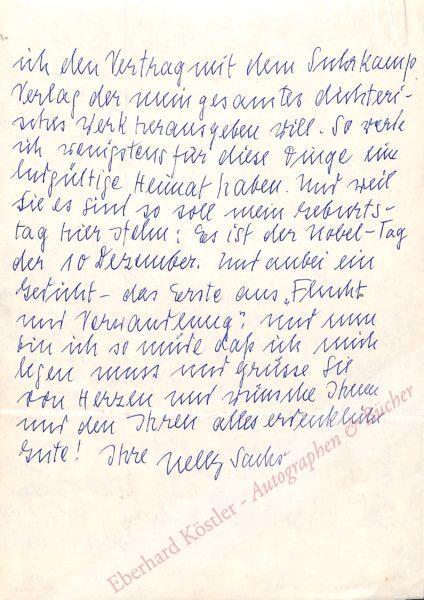 ich den Vertrag mit dem Suhrkamp
Verlag der mein gesamtes dichteri-
sches Werk herausgeben will. So werde
ich wenigstens für diese Dinge eine
endgültige Heimat haben. Und weil
Sie es sind so soll mein Geburts-
tag hier stehn: Es ist der Nobel-Tag
der 10 Dezember. Und anbei ein
Gedicht – das Erste aus „Flucht
und Verwandlung". Und nun
bin ich so müde daß ich mich
legen muss und grüsse Sie
von Herzen und wünsche Ihnen
und den Ihren alles erdenklich
Gute! Ihre Nelly Sachs
Eberhard Köstler - Autographen & Bücher